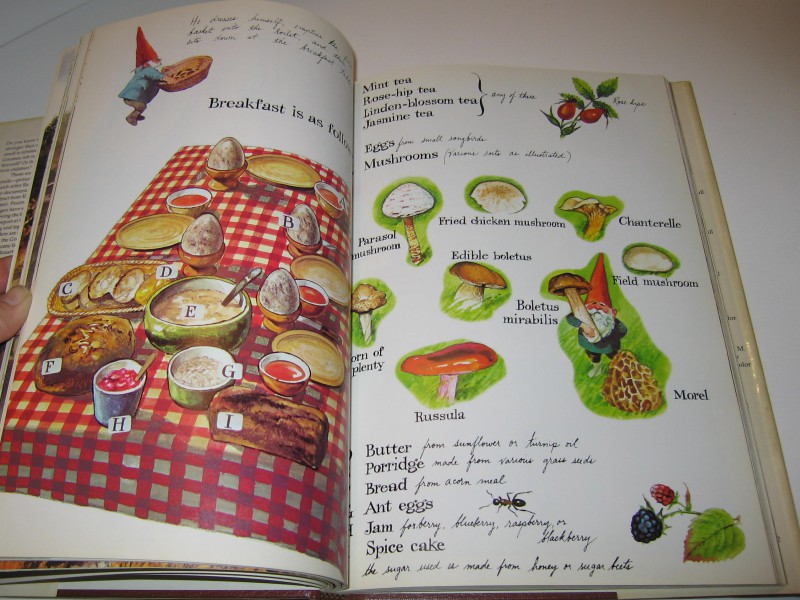 He dresses himself, empties the
basket into the toilet, and
sits down at the breakfast
Breakfast is as follow
A
B
C
D
E
F
G
H
I
Mint tea
Rose-hip tea
Linden-blossom tea
Jasmine tea
any of these
Rose hips
Eggs from small songbirds
Mushrooms (various sorts as illustrated)
Parasol
mushroom
Fried chicken mushroom
Chanterelle
Edible boletus
Field mushroom
Boletus
mirabilis
orn of
plenty
Russula
Morel
Butter from sunflower or turnip oil
Porridge made from various grass seeds
Bread from acorn meal
Ant eggs
Jam forberry, blueberry, raspberry, or
blackberry
Spice cake
the sugar used is made from honey or sugar beets